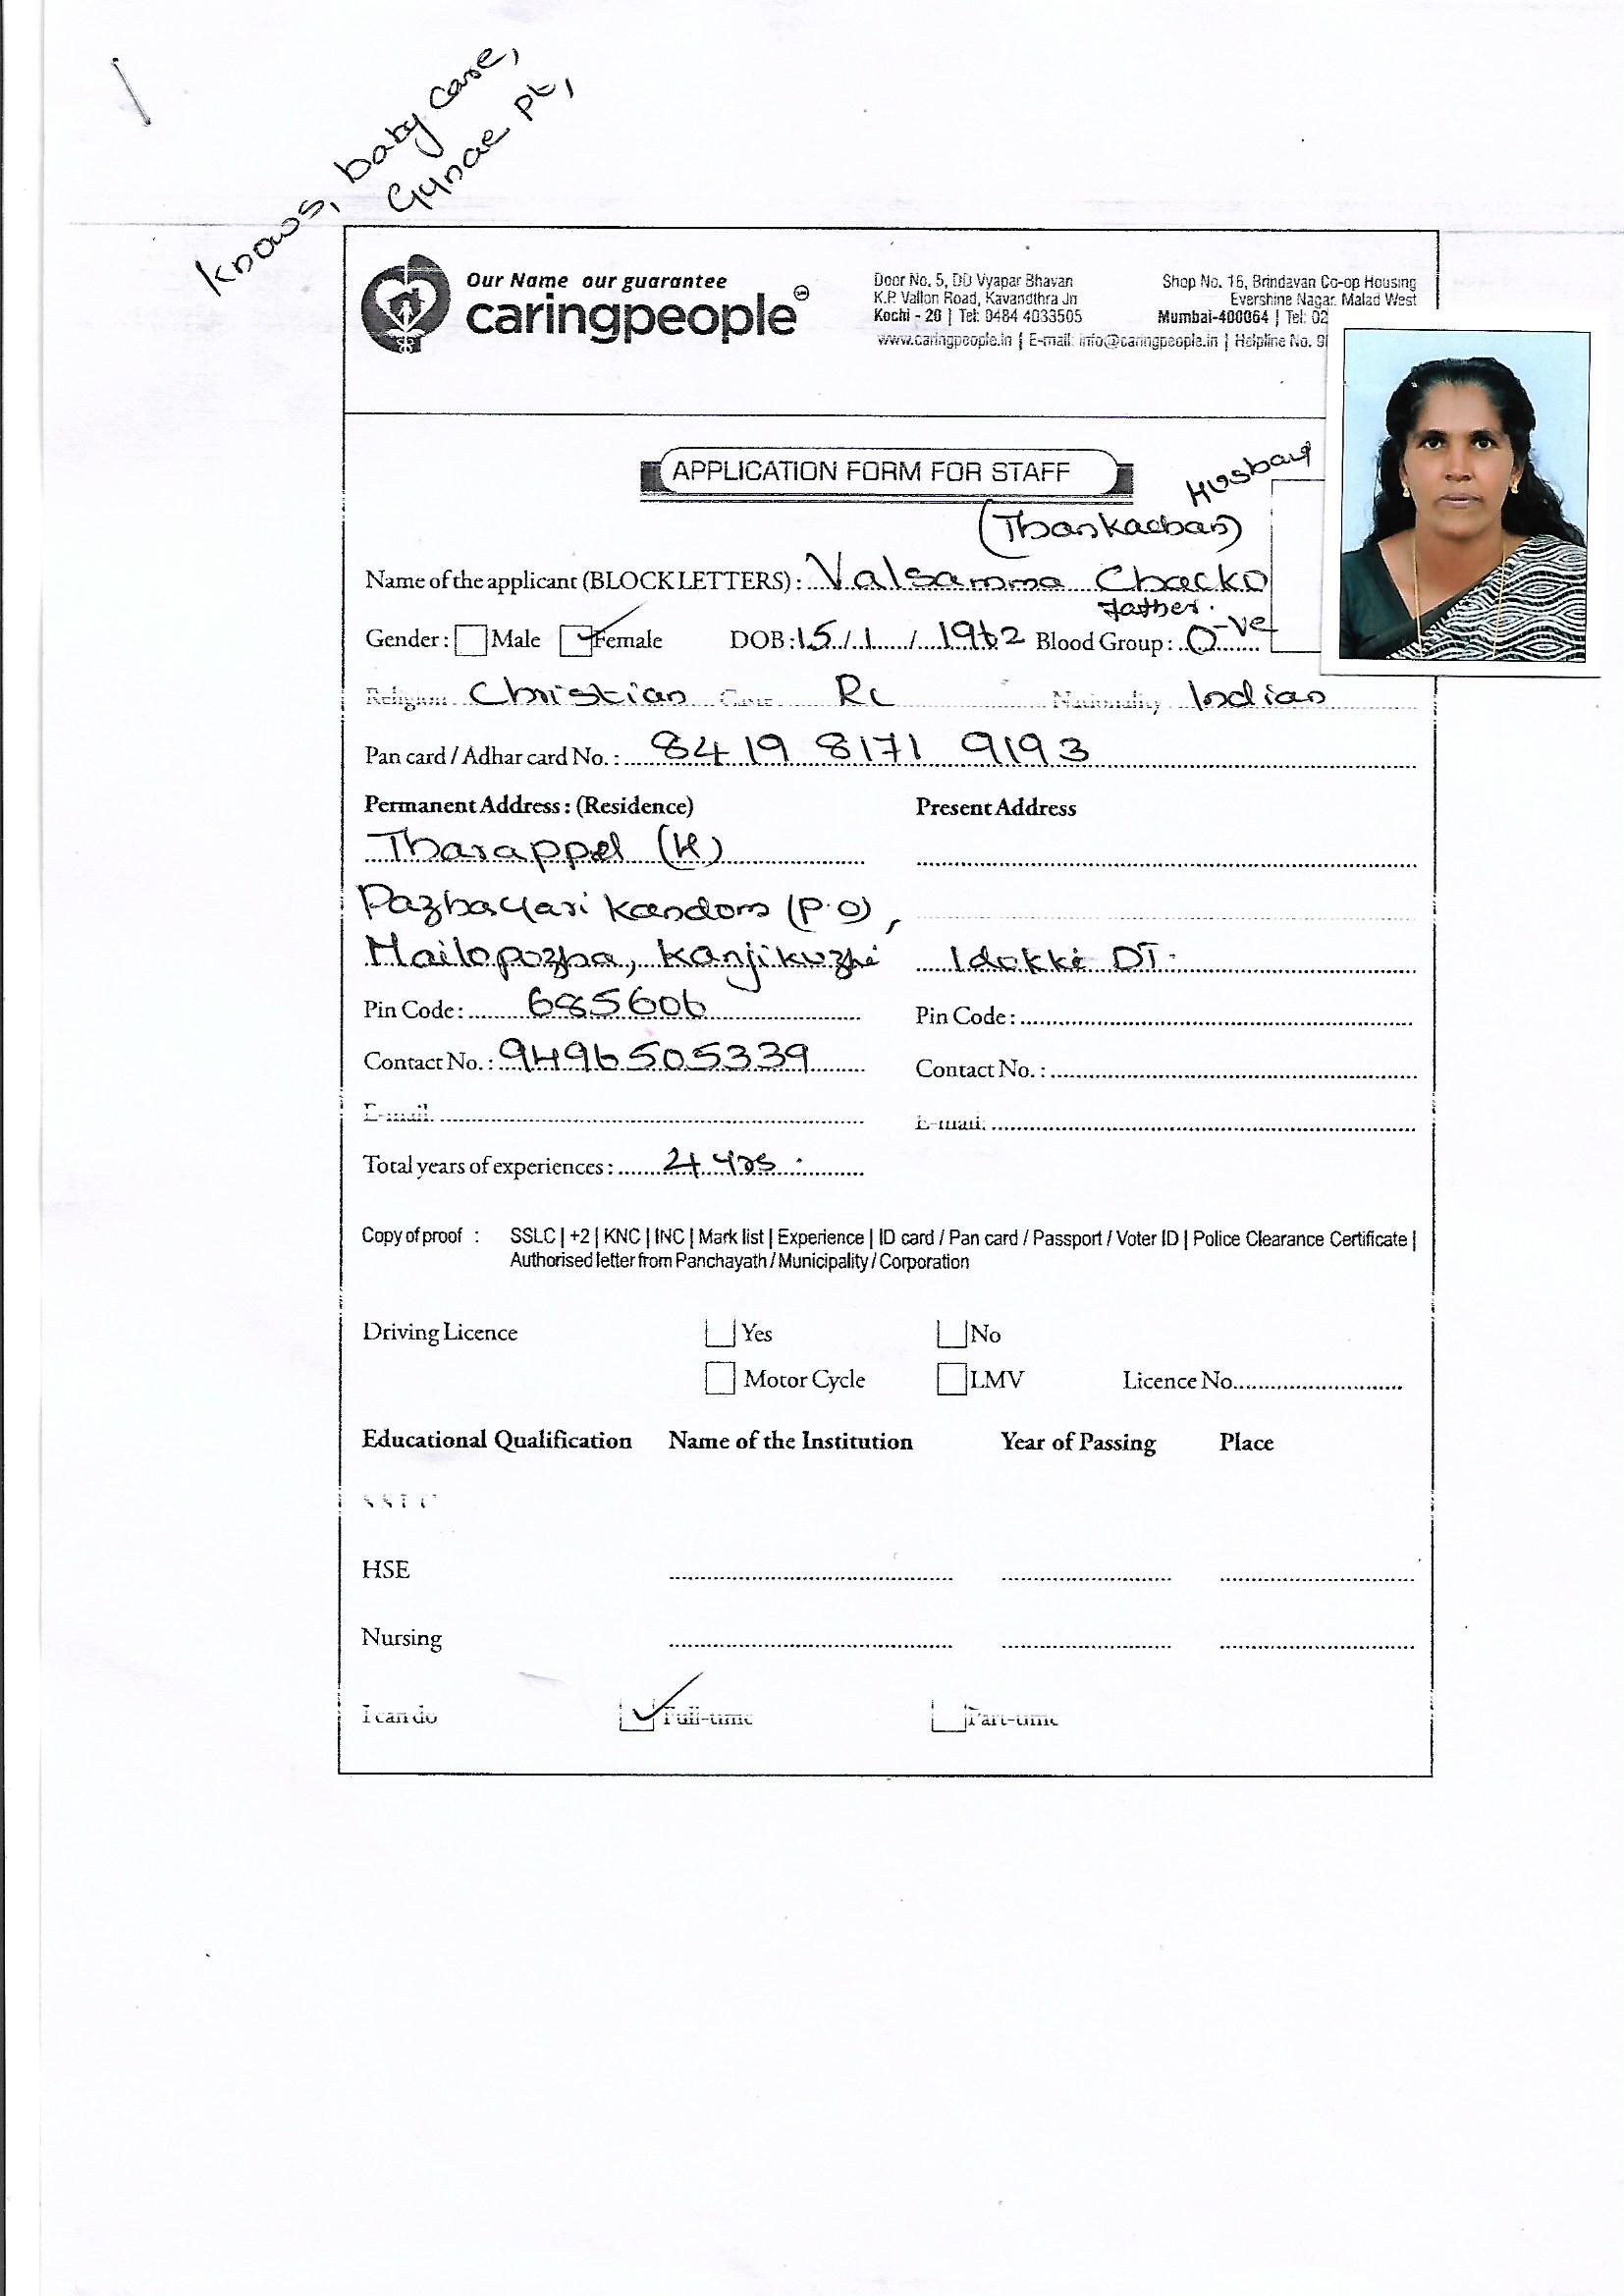 Knows, baby care,
Gynae pt,
Our Name our guarantee
caringpeople
Door No. 5, DD Vyapar Bhavan
K.P. Vallon Road, Kavandthra Jn
Kochi - 20 | Tel: 0484 4033505
Shop No. 16, Brindavan Co-op Housing
Evershine Nagar, Malad West
Mumbai-400064 | Tel: 02
www.caringpeople.in | E-mail: info@caringpeople.in | Helpline No. 9
APPLICATION FORM FOR STAFF
Husband
(Thankachan)
Name of the applicant (BLOCK LETTERS): Valsamma Chacko
Father.
Gender: Male Female DOB: 15/1/1962 Blood Group: O-ve
Religion Christian Caste Rc Nationality Indian
Pan card / Adhar card No.: 8419 8171 9193
Permanent Address: (Residence) Present Address
Tharappel (H)
Pazhayarikandom (P.O),
Mailapuzha, Kanjikuzhi Idukki DT.
Pin Code: 685606 Pin Code:
Contact No.: 9496505339 Contact No.:
E-mail: E-mail:
Total years of experiences: 4 yrs.
Copy of proof : SSLC | +2 | KNC | INC | Mark list | Experience | ID card / Pan card / Passport / Voter ID | Police Clearance Certificate |
Authorised letter from Panchayath / Municipality / Corporation
Driving Licence Yes No
Motor Cycle LMV Licence No.
Educational Qualification Name of the Institution Year of Passing Place
SSLC
HSE
Nursing
I can do Full-time Part-time